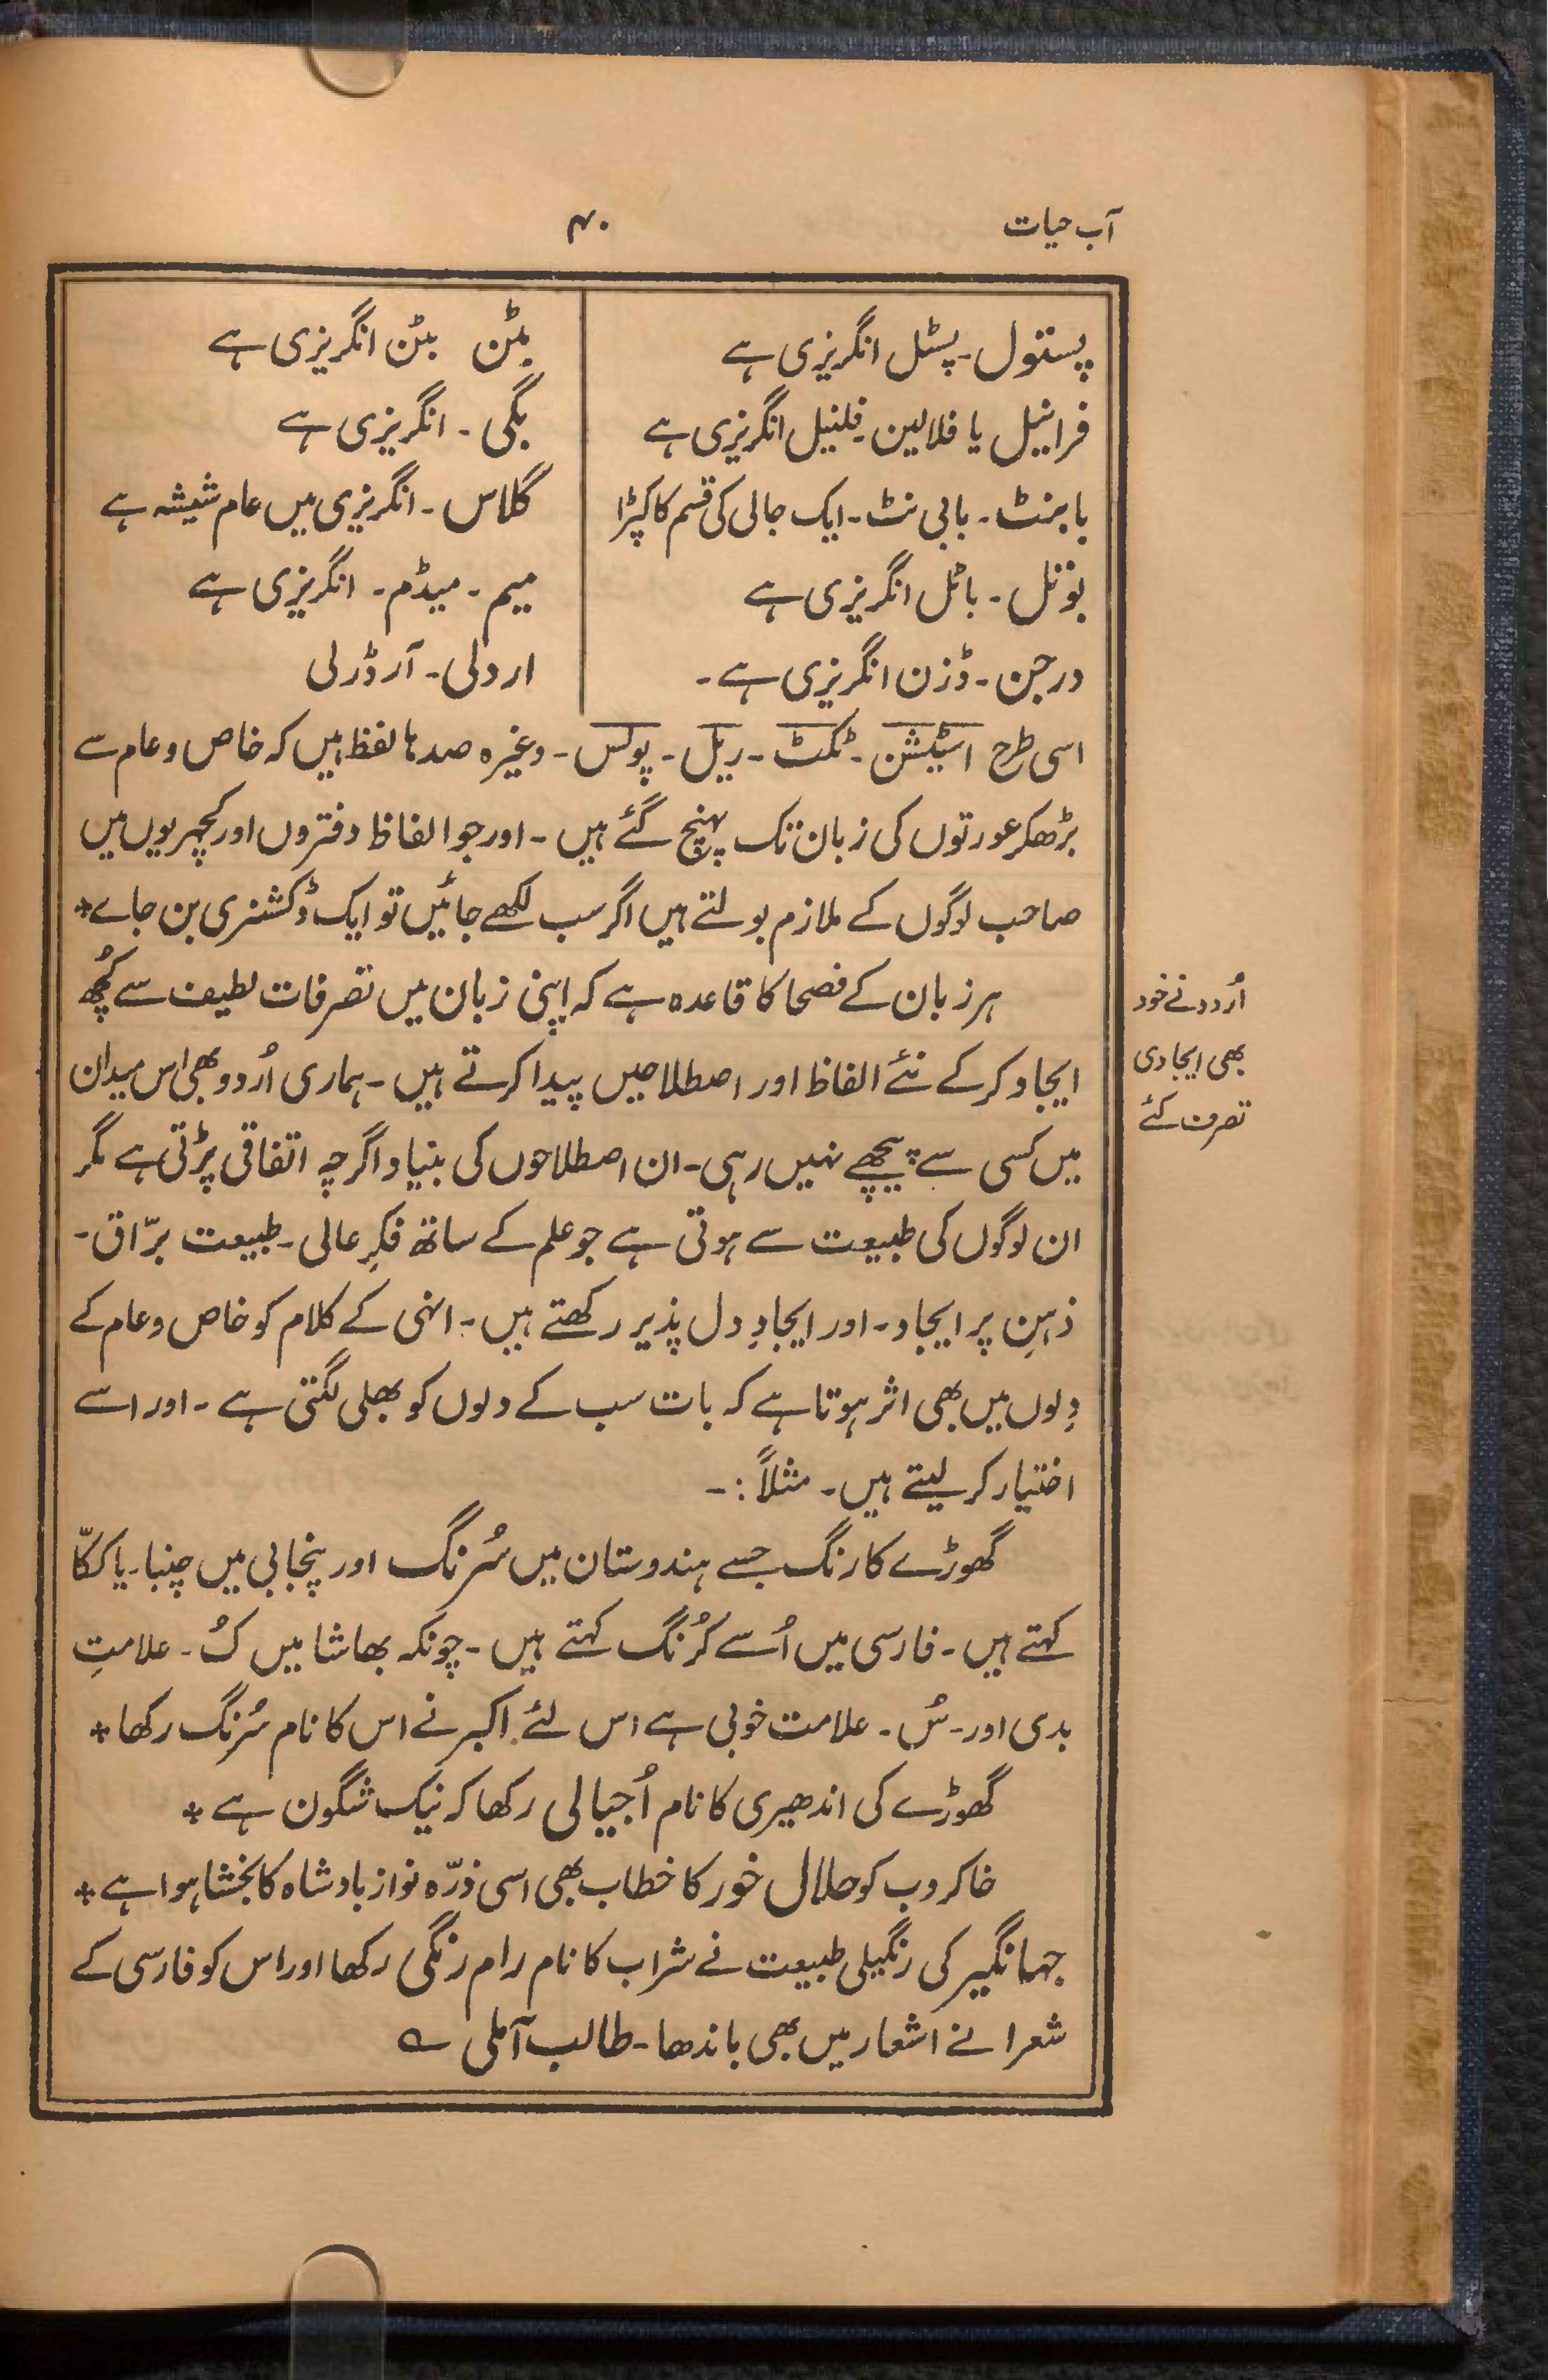 آب حیات
۴۰
پستول۔ پسٹل انگریزی ہے
فرانیل یا فلالین۔ فلنیل انگریزی ہے
بابنٹ۔ بابی نٹ۔ ایک جالی کی قسم کا کپڑا
بوتل۔ باٹل انگریزی ہے
درجن۔ ڈزن انگریزی ہے۔
بٹن بٹن انگریزی ہے
بگی۔ انگریزی ہے
گلاس۔ انگریزی میں عام شیشہ ہے
میم۔ میڈم۔ انگریزی ہے
اردلی۔ آرڈرلی
اسی طرح اسٹیشن۔ ٹکٹ۔ ریل۔ پولس۔ وغیرہ صدہا لفظ ہیں کہ خاص و عام سے
بڑھکر عورتوں کی زبان تک پہنچ گئے ہیں۔ اور جو الفاظ دفتروں اور کچہریوں میں
صاحب لوگوں کے ملازم بولتے ہیں اگر سب لکھے جائیں تو ایک ڈکشنری بن جاے*
ہر زبان کے فصحا کا قاعدہ ہے کہ اپنی زبان میں تصرفات لطیف سے کُچھ
ایجاد کرکے نئے الفاظ اور اصطلاحیں پیدا کرتے ہیں۔ ہماری اُردو بھی اس میدان
میں کسی سے پیچھے نہیں رہی۔ ان اصطلاحوں کی بنیاد اگرچہ اتفاقی پڑتی ہے مگر
ان لوگوں کی طبیعت سے ہوتی ہے جو علم کے ساتھ فکرِ عالی۔ طبیعت برّاق۔
ذہنِ پر ایجاد۔ اور ایجادِ دل پذیر رکھتے ہیں۔ انہی کے کلام کو خاص و عام کے
دِلوں میں بھی اثر ہوتا ہے کہ بات سب کے دلوں کو بھلی لگتی ہے۔ اور اسے
اختیار کر لیتے ہیں۔ مثلاً :۔
گھوڑے کا رنگ جسے ہندوستان میں سُرنگ اور پنجابی میں چنبا۔ یا ککّا
کہتے ہیں۔ فارسی میں اُسے کُرنگ کہتے ہیں۔ چونکہ بھاشا میں کُ۔ علامتِ
بدی اور۔ سُ۔ علامت خوبی ہے اس لئے اکبر نے اس کا نام سُرنگ رکھا*
گھوڑے کی اندھیری کا نام اُجیالی رکھا کہ نیک شگون ہے*
خاکروب کو حلال خور کا خطاب بھی اسی ذرّہ نواز بادشاہ کا بخشا ہوا ہے*
جہانگیر کی رنگیلی طبیعت نے شراب کا نام رام رنگی رکھا اور اس کو فارسی کے
شعرا نے اشعار میں بھی باندھا۔ طالب آملی ؎
اُردو نے خود
بھی ایجادی
تصرف کئے